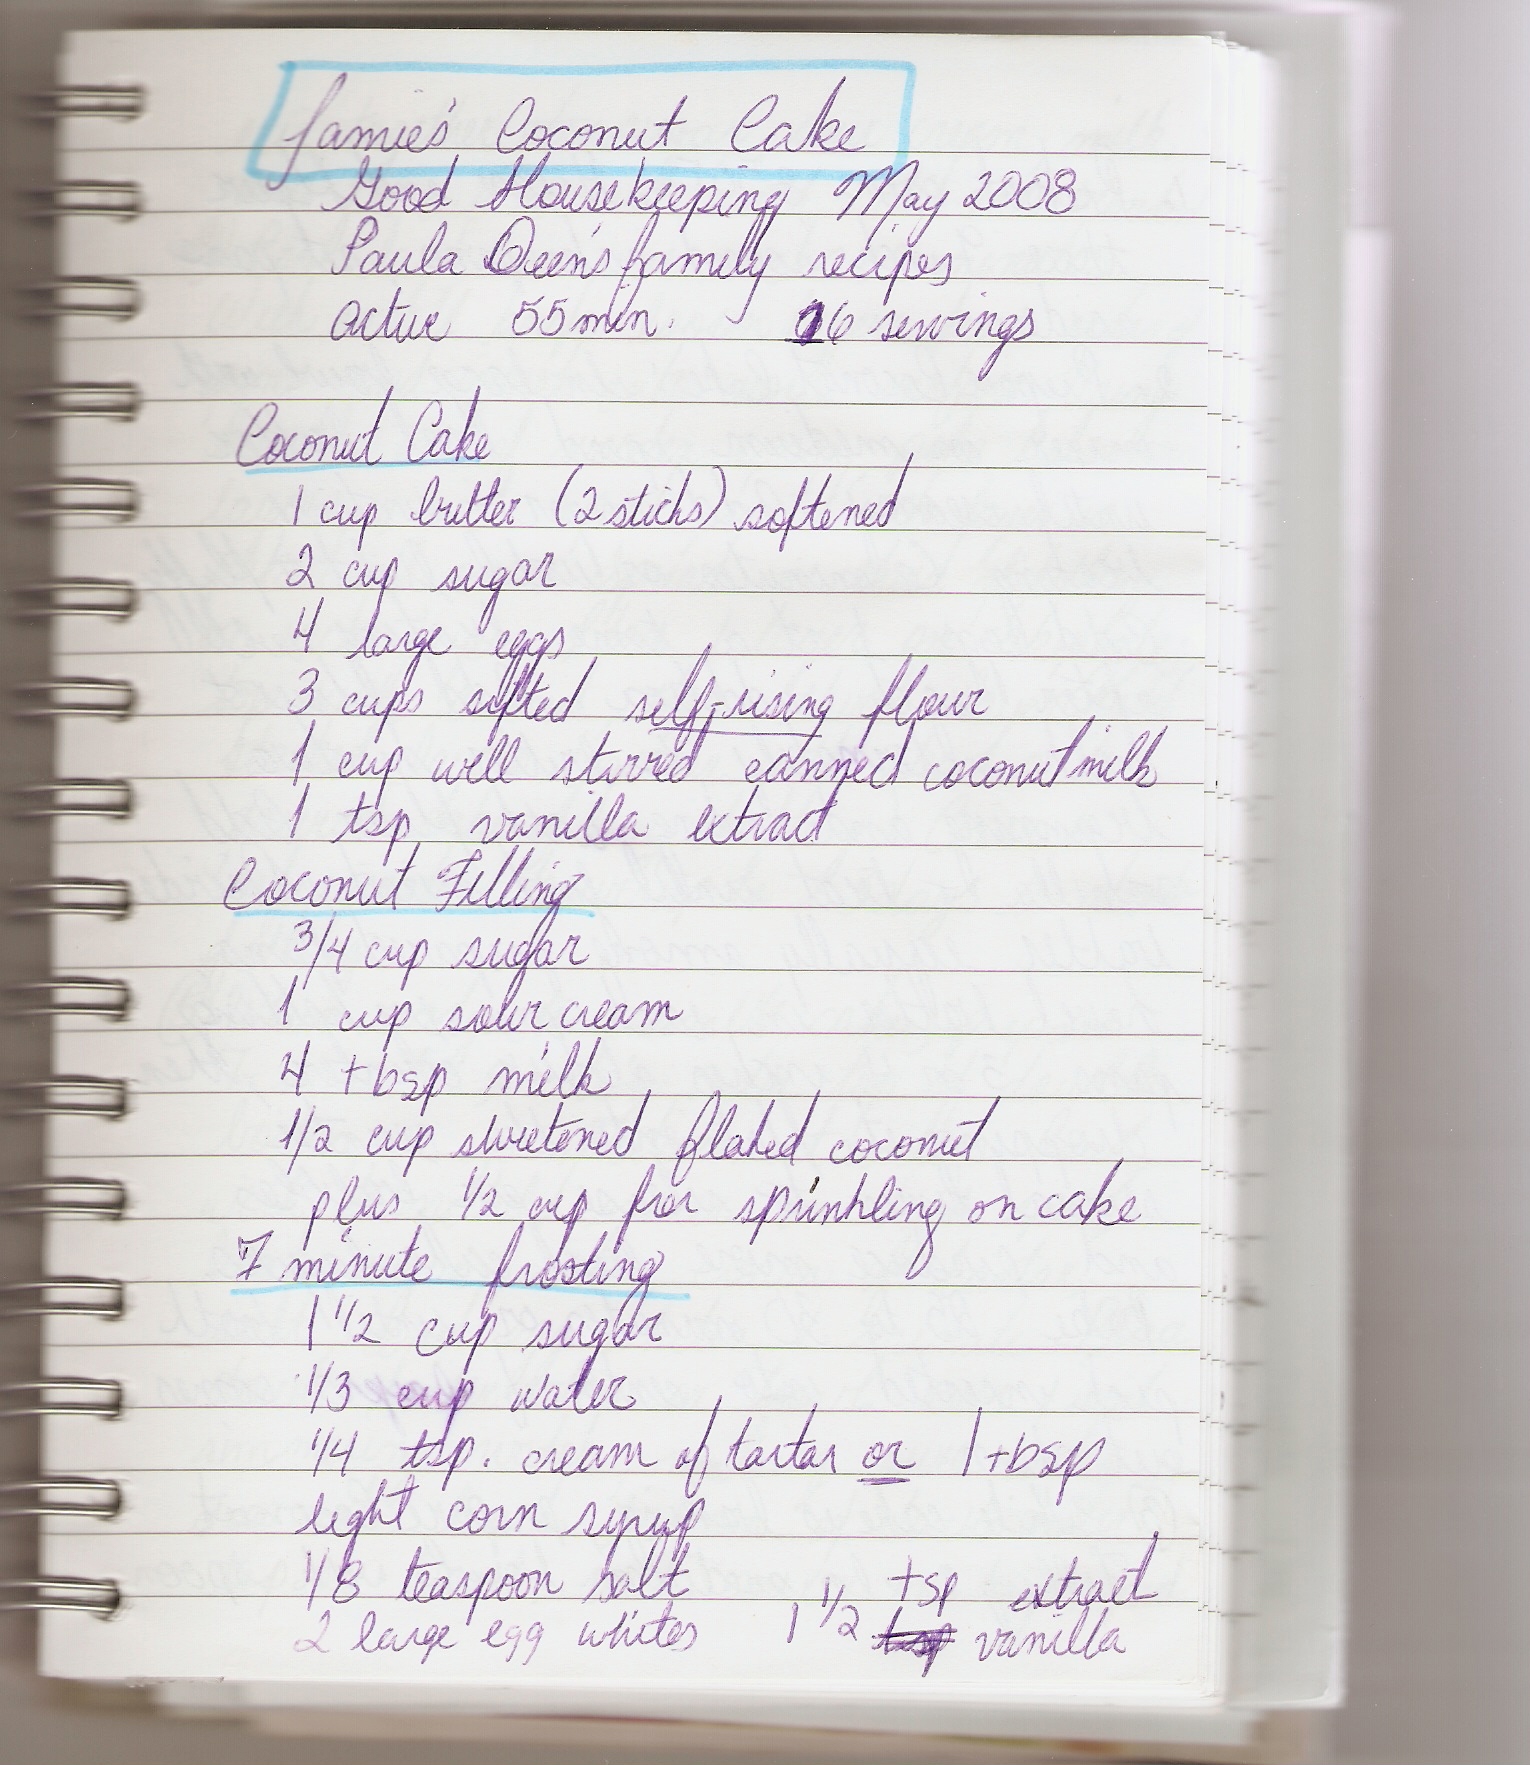 Jamie's Coconut Cake
Good Housekeeping May 2008
Paula Deen's family recipes
active 55 min. 16 servings
Coconut Cake
1 cup butter (2 sticks) softened
2 cup sugar
4 large eggs
3 cups sifted self-rising flour
1 cup well stirred canned coconut milk
1 tsp vanilla extract
Coconut Filling
3/4 cup sugar
1 cup sour cream
4 tbsp milk
1/2 cup sweetened flaked coconut
plus 1/2 cup for sprinkling on cake
7 minute frosting
1 1/2 cup sugar
1/3 cup water
1/4 tsp. cream of tartar or 1 tbsp
light corn syrup
1/8 teaspoon salt
2 large egg whites 1 1/2 tsp vanilla extract